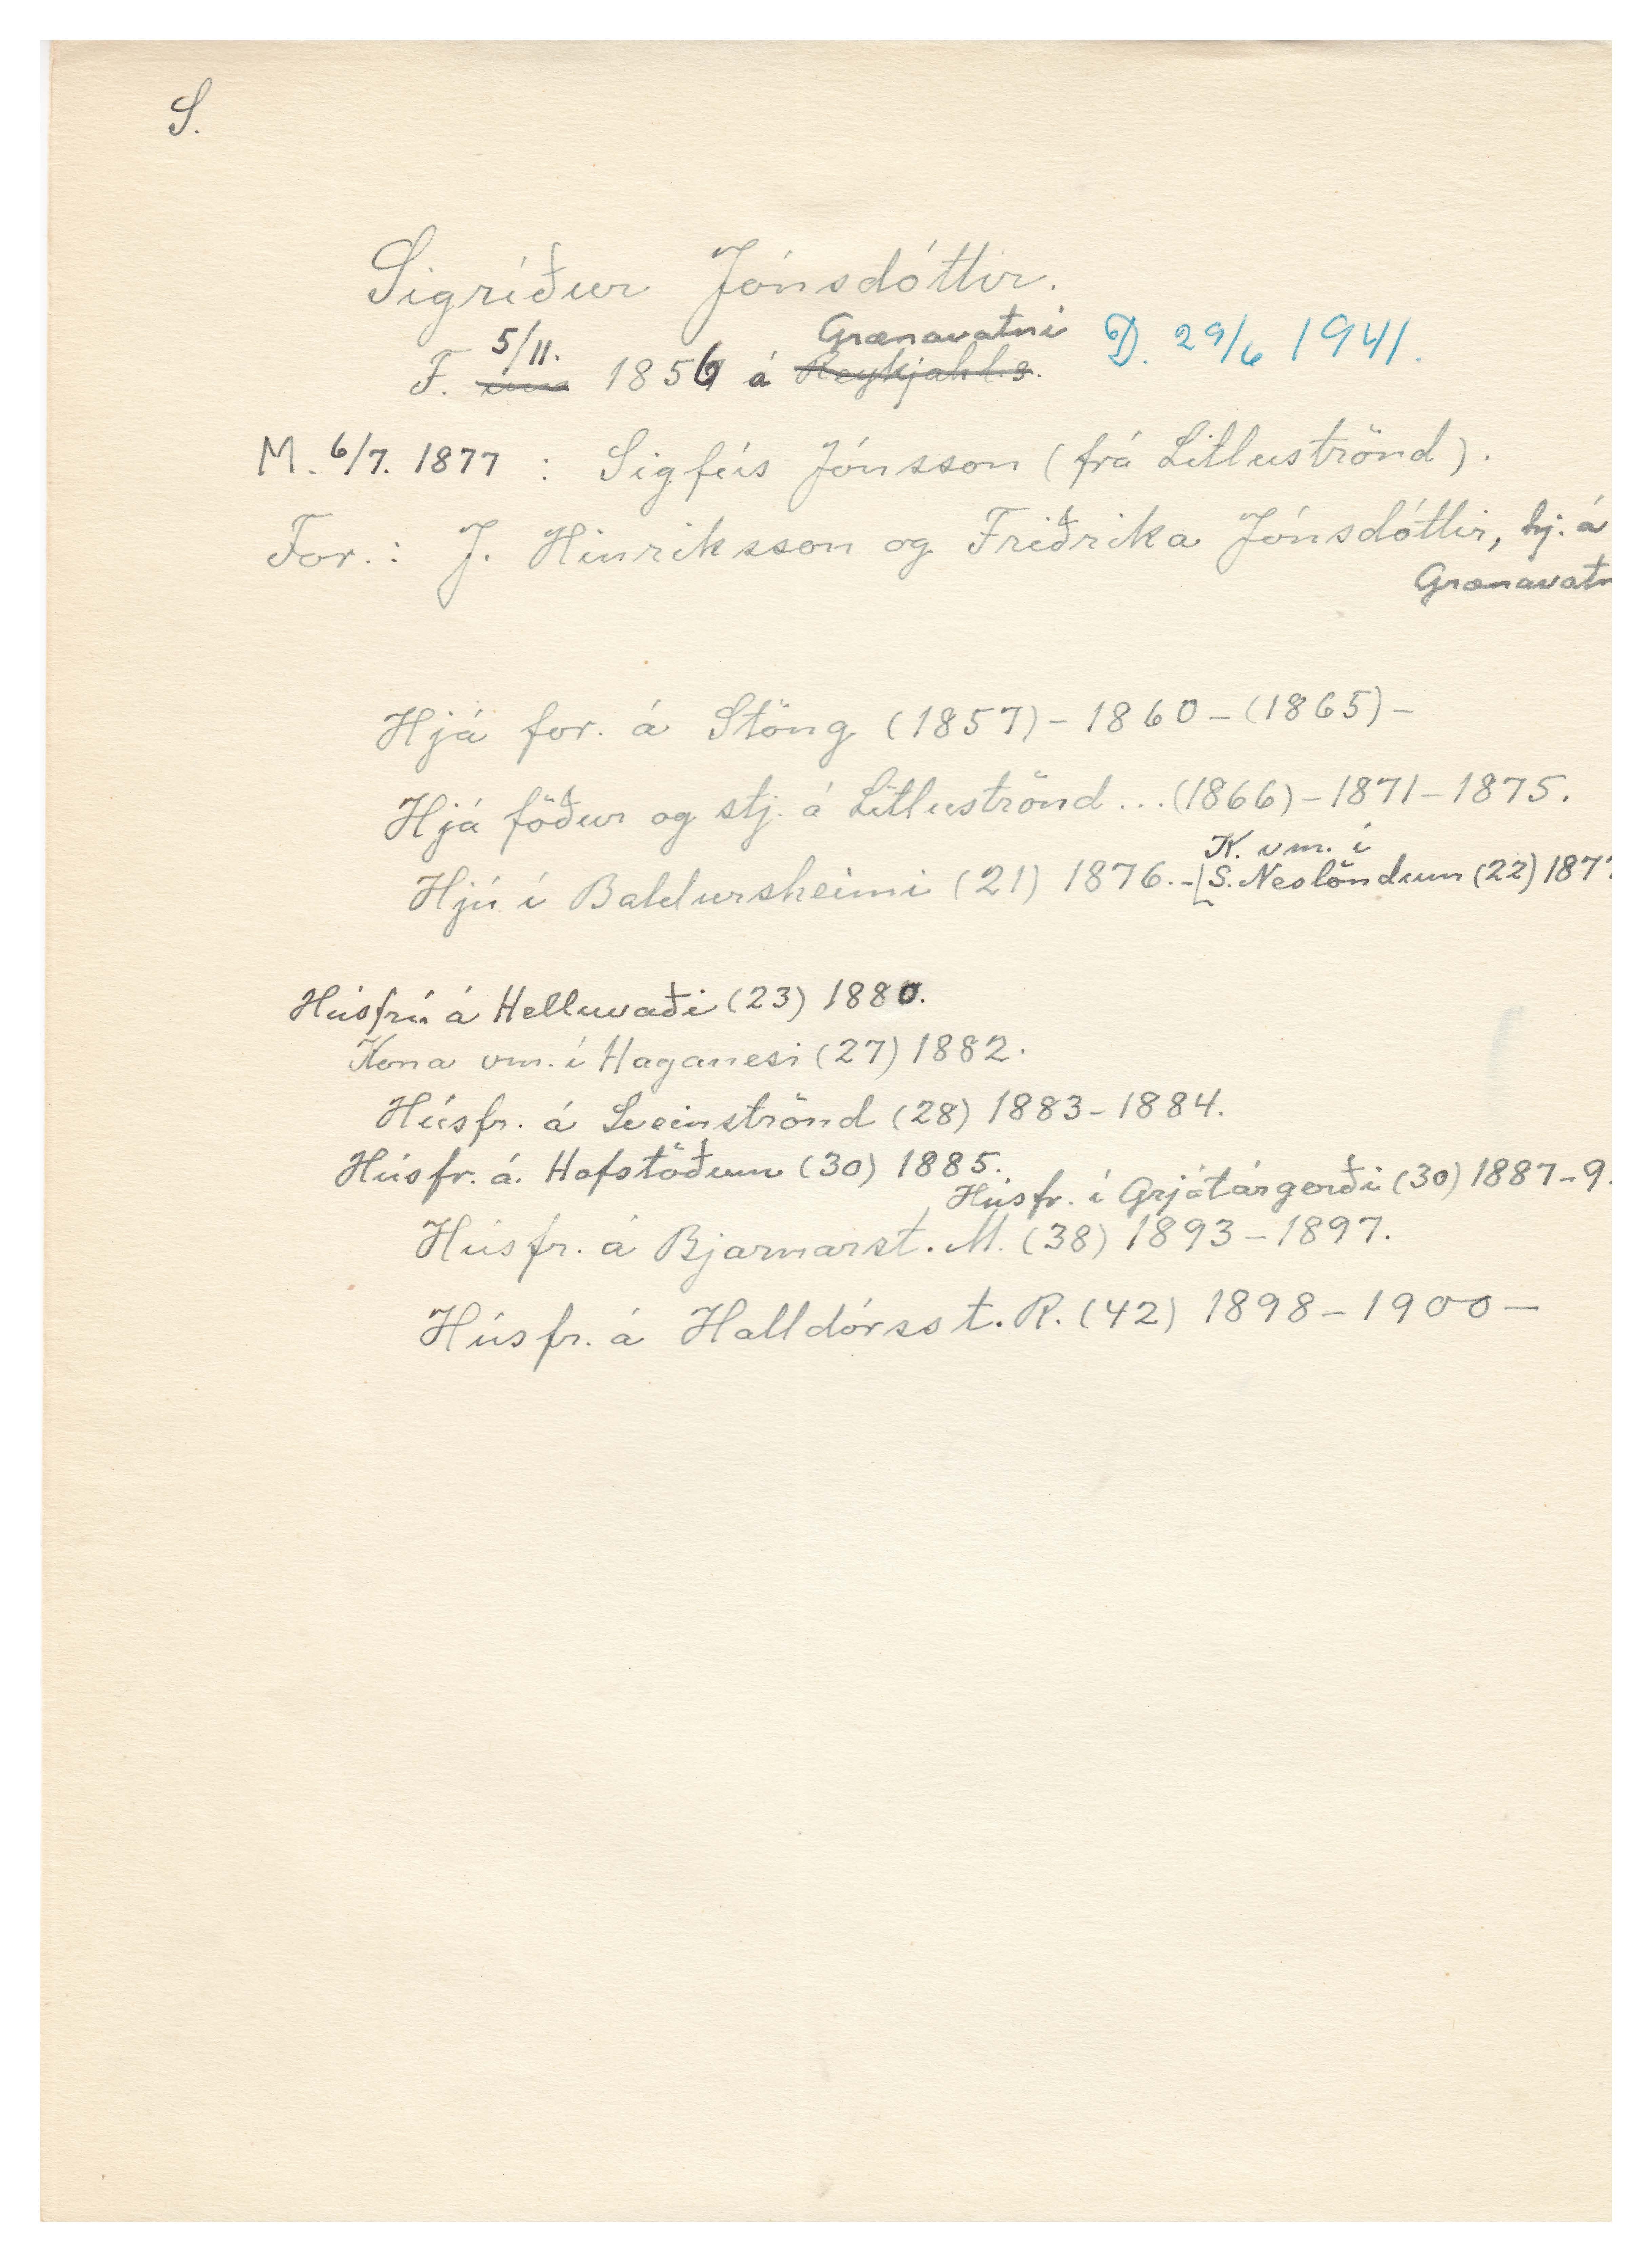 S.
Sigríður Jónsdóttir.
F. 5/11. 1856 á Grænavatni Reykjahl.s. D. 29/6 1941.
M. 6/7. 1877 : Sigfús Jónsson (frá Litluströnd).
For.: J. Hinriksson og Friðrika Jónsdóttir, hj. á
Grænavatn
Hjá for. á Stöng (1857) - 1860 - (1865) -
Hjá föður og stj. á Litluströnd ... (1866) - 1871 - 1875.
K. vm. í
Hjú í Baldursheimi (21) 1876. - [S. Neslöndum (22) 1877
Húsfrú á Helluvaði (23) 1880.
Kona vm. í Haganesi (27) 1882.
Húsfr. á Sveinströnd (28) 1883 - 1884.
Húsfr. á. Hofstöðum (30) 1885.
Húsfr. í Grjótárgerði (30) 1887 - 9
Húsfr. á Bjarnarst. M. (38) 1893 - 1897.
Húsfr. á Halldórsst. R. (42) 1898 - 1900 -